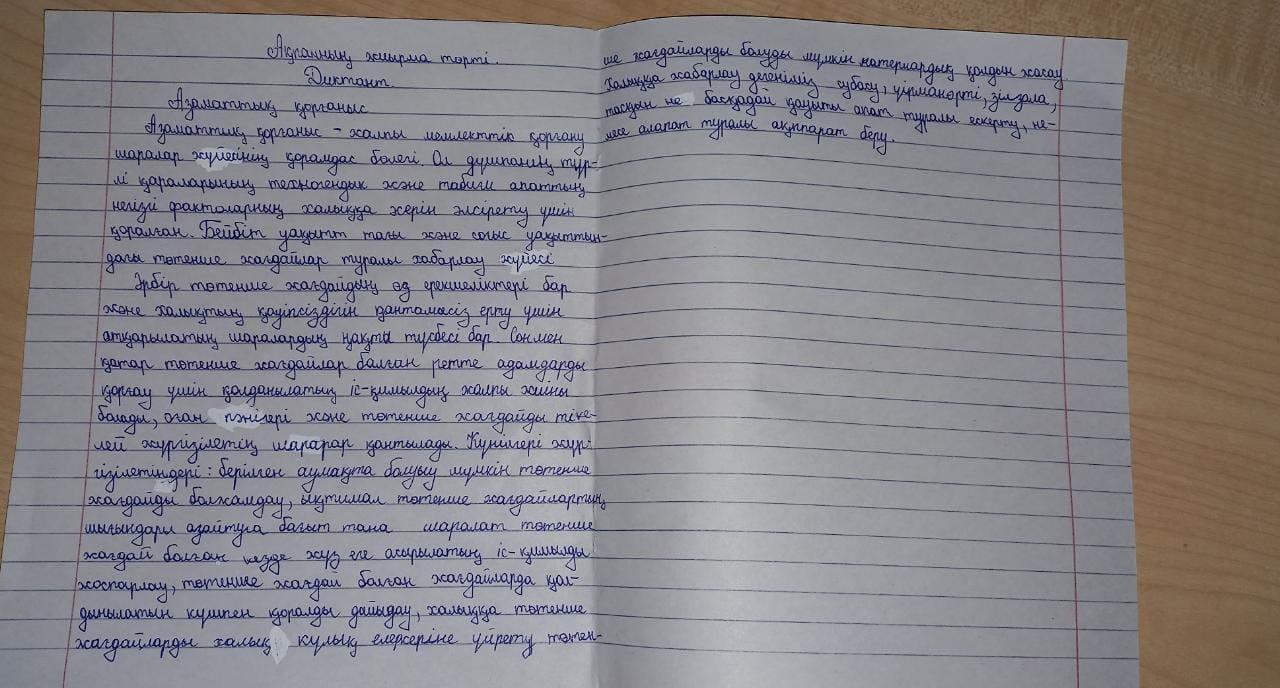 Ақпанның жиырма төрті.
Диктант.
Азаматтық қорғаныс
Азаматтық қорғаныс - жалпы мемлекттік қорғану
шаралар жүйесінің қоралдас бөлегі. Ол душпанның түр-
лі қараларының техногендык және табиғи апаттың
негізгі факторларның халыққа жерін әлсірету үшін
қоралған. Бейбіт уақытт тағы және соғыс уақыттын-
дағы төтенше жағдайлар туралы хабарлау жүйесі
Әрбір төтенше жағдайдың өд ерекшеліктері бар
және халықтың қауіпсіздігін қантамасіз ерту үшін
атқарылатың шаралардың нақты түсбесі бар. Сонмен
қатар төтенше жағдайлар балған ретте адамдарды
қорғау үшін қолданылатың іс-қимылдың жалпы жиыны
болады, оған және төтенше жағдайды тіке-
лей жүргізілетің қантылады. Күнілгері жүр-
гізілетіндері: берілген аумақта болуы мүмкін төтенше
жағдайды балжамдау, ықтимал төтенше жағдайлартың
шығындары азайтуға бағыт тана шаралат төтенше
жағдай балған кезде жүз еге асырылатың іс-қимылды
жоспарлау, төтенше жағдай балған жағдайларда қал-
дынылатын күшпен қоралды дайыдау, халыққа төтенше
жағдайларды халық құлық елерсеріне үйрету төтен-
ше жағдайларды балуды мүмкін материардық қолдын жасау
Халыққа хабарлау дегеніміз субасу, үірманөрті, зілзала,
тасқын не басқадай қауыты апат туралы ескерту, не-
месе алапат туралы ақппарат беру.